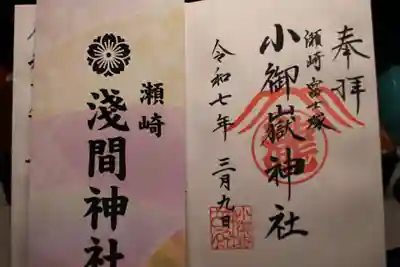 奉拝
瀬崎富士塚
小御嶽神社
令和七年 三月九日
瀬崎
淺間神社